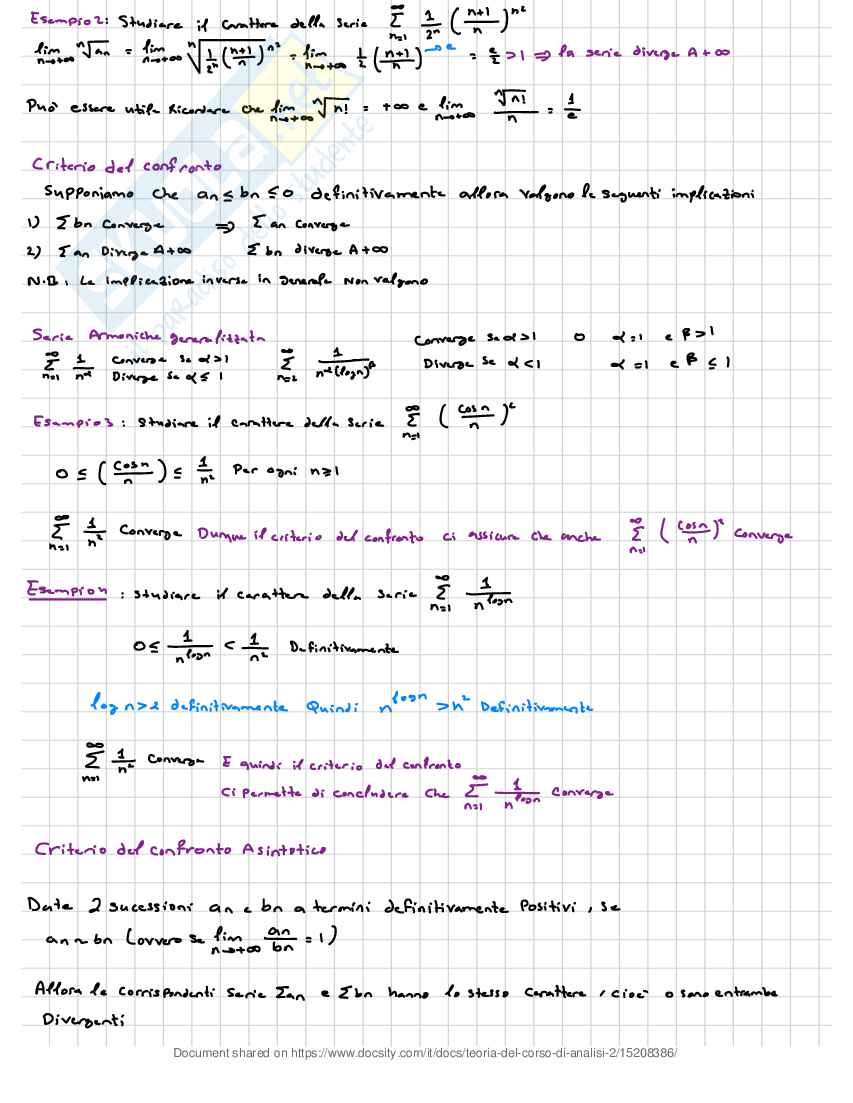 Esempio 2: Studiare il Carattere della Serie ∑_{n=1}^{∞} 1/2^n ((n+1)/n)^{n²}
lim_{n→+∞} ⁿ√an = lim_{n→+∞} ⁿ√(1/2^n ((n+1)/n)^{n²}) = lim_{n→+∞} 1/2 ((n+1)/n)^n →e = e/2 > 1 ⇒ la serie diverge A +∞
Può essere utile Ricordare che lim_{n→+∞} ⁿ√n! = +∞ e lim_{n→+∞} ⁿ√n!/n = 1/e
Criterio del confronto
Supponiamo che an ≤ bn ≤ 0 definitivamente allora valgono le seguenti implicazioni
1) Σ bn Converge ⇒ Σ an Converge
2) Σ an Diverge A +∞ Σ bn diverge A +∞
N.B. Le Implicazione inverse in generale Non valgono
Serie Armoniche generalizzata
∑_{n=1}^{∞} 1/n^α Converge Se α>1 Diverge Se α ≤ 1 ∑_{n=2}^{∞} 1/(n^α (log n)^β) Converge Se α>1 o α=1 e β>1
Diverge Se α<1 α=1 e β ≤ 1
Esempio 3: Studiare il carattere della Serie ∑_{n=1}^{∞} (cos n/n)²
0 ≤ (cos n/n) ≤ 1/n² Per ogni n≥1
∑_{n=1}^{∞} 1/n² Converge Dunque il criterio del confronto ci assicura che anche ∑_{n=1}^{∞} (cos n/n)² Converge
Esempio 4: Studiare il carattere della Serie ∑_{n=1}^{∞} 1/n^{log n}
0 ≤ 1/n^{log n} < 1/n² Definitivamente
log n>2 definitivamente Quindi n^{log n} > n² Definitivamente
∑_{n=1}^{∞} 1/n² Converge E quindi il criterio del confronto
Ci Permette di concludere Che ∑_{n=1}^{∞} 1/n^{log n} Converge
Criterio del Confronto Asintotico
Date 2 sucessioni an e bn a termini definitivamente Positivi, Se
an ~ bn (ovvero se lim_{n→+∞} an/bn = 1)
Allora le corrispondenti Serie Σan e Σbn hanno lo stesso Carattere, cioè o sono entrambe
Divergenti
Document shared on https://www.docsity.com/it/docs/teoria-del-corso-di-analisi-2/15208386/